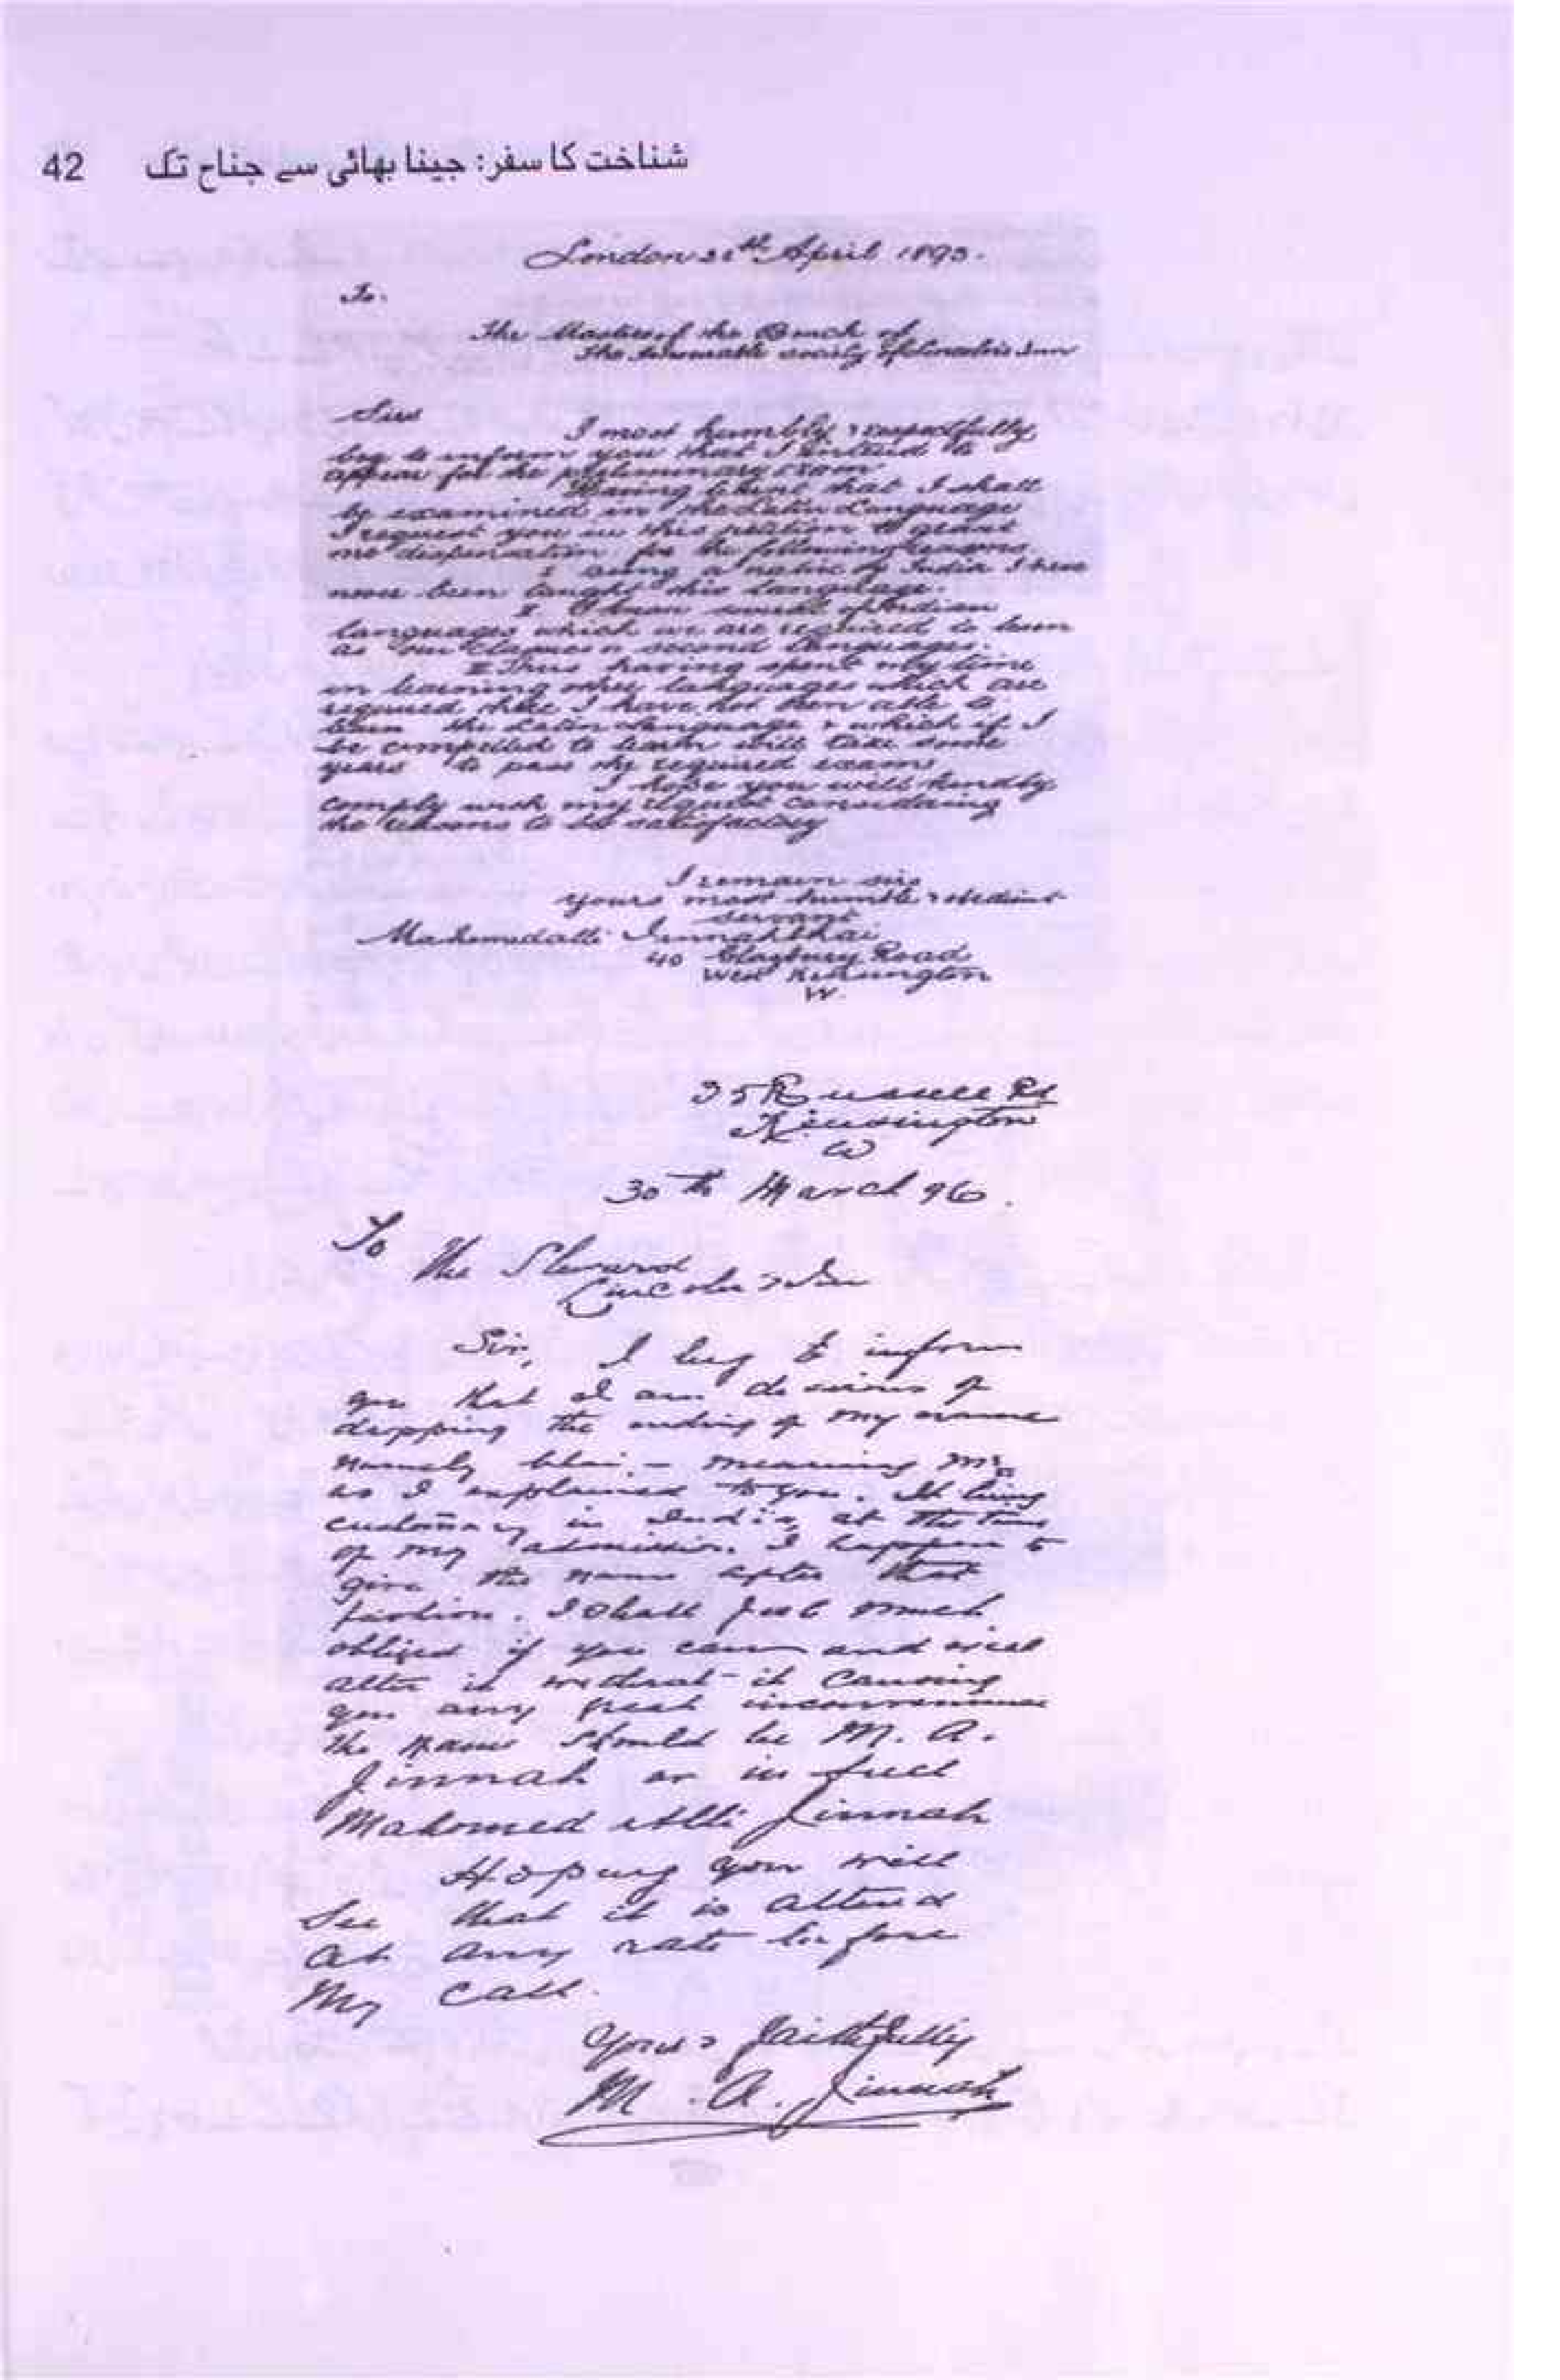 شناخت کا سفر: جینا بھائی سے جناح تک 42
London 25th April 1893.
To.
The Masters of the Bench of
The honourable society of Lincoln's Inn
Sirs
I most humbly & respectfully
beg to inform you that I intend to
appear for the preliminary exam
Having learnt that I shall
be examined in the Latin Language
I request you in this petition to grant
me dispensation for the following reasons.
I being a native of India I have
never been taught this language.
II I know several of Indian
languages which we are required to learn
as our classics or second languages.
III Thus having spent my time
in learning other languages which are
required there I have not been able to
learn the Latin Language & which if I
be compelled to learn will take some
years to pass the required exams
I hope you will kindly
comply with my request considering
the reasons to be satisfactory
I remain sirs
yours most humble & obedient
servant
Mahomedalli Jinnahbhai
40 Road
West Kensington
W.
35 Russell Rd
Kensington
W
30th March 96.
To
The Steward
Lincoln's Inn
Sir, I beg to inform
you that I am desirous of
dropping the ending of my name
namely bhai - meaning Mr.
as I explained to you. It being
customary in India, at the time
of my admission. I happen to
give the name after that
fashion. I shall feel much
obliged if you can and will
alter it without it causing
you any great inconvenience
the name should be M. A.
Jinnah or in full
Mahomed Alli Jinnah
Hoping you will
See that it is altered
at any rate before
My call.
Yours faithfully
M. A. Jinnah